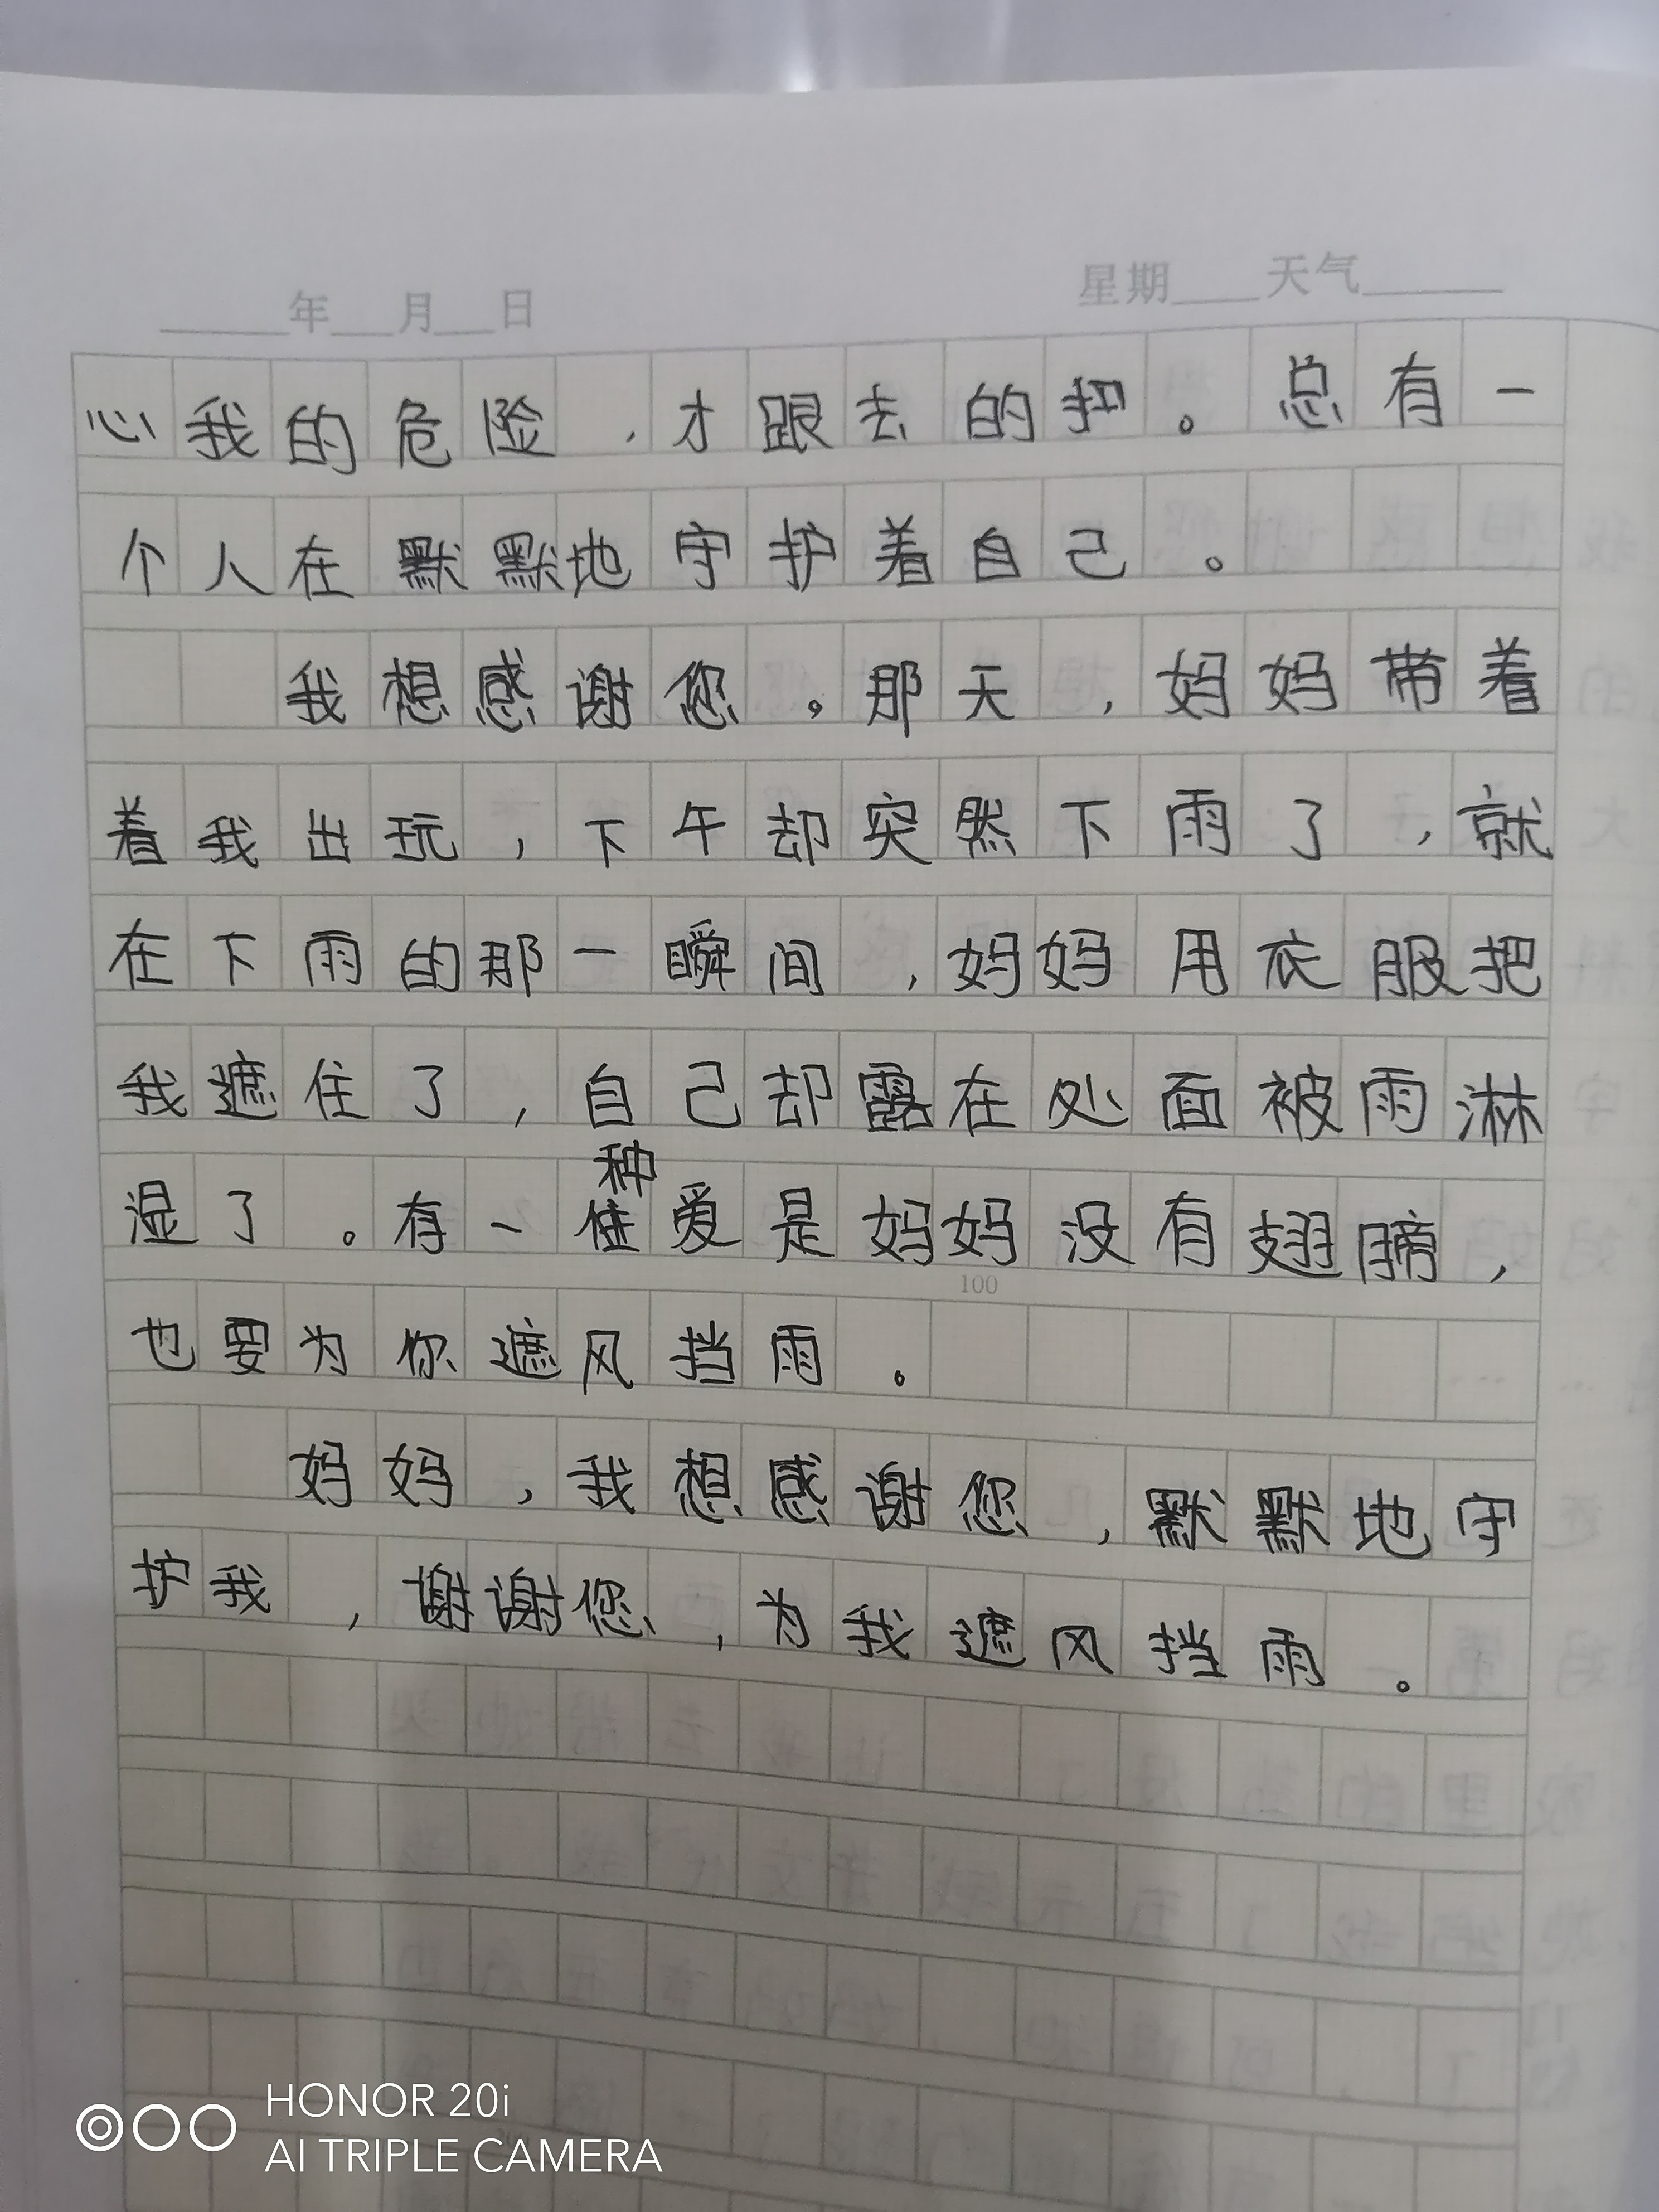 年 月 日 星期 天气
心我的危险,才跟去的把。总有一
个人在默默地守护着自己。
我想感谢您。那天,妈妈带着
着我出玩,下午却突然下雨了,就
在下雨的那一瞬间,妈妈用衣服把
我遮住了,自己却露在处面被雨淋
种
湿了。有一住爱是妈妈没有翅膀,
100
也要为你遮风挡雨。
妈妈,我想感谢您,默默地守
护我,谢谢您,为我遮风挡雨。
HONOR 20i
AI TRIPLE CAMERA